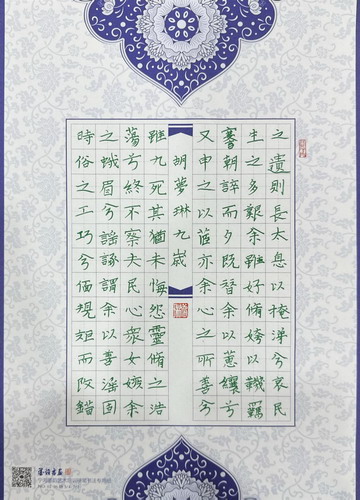 之遺則長太息以掩涕兮哀民
生之多艱余雖好脩姱以鞿羈
謇朝誶而夕既替余以蕙纕兮
又申之以茝亦余心之所善兮
胡夢琳九歲
雖九死其猶未悔怨靈脩之浩
蕩兮終不察夫民心眾女嫉余
之蛾眉兮謠諑謂余以善淫固
時俗之工巧兮偭規矩而改錯